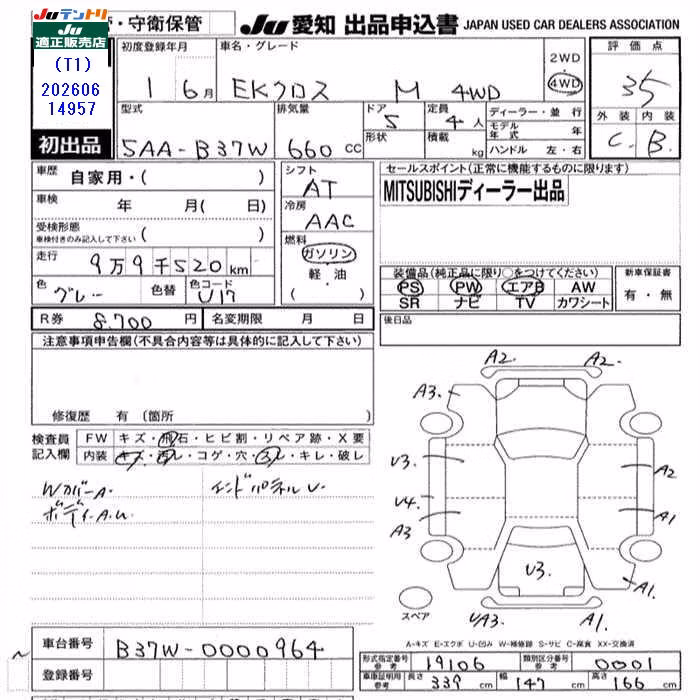 JUテントリ
JU適正販売店
(T1)
202606
14957
・守衛保管
JU 愛知 出品申込書 JAPAN USED CAR DEALERS ASSOCIATION
初出品
初度登録年月 車名・グレード 2WD 4WD 評価点
1 6月 EKクロス M 4WD 35
外装 内装
C. B.
型式 排気量 ドア 5 定員 4人 ディーラー・並行
5AA-B37W 660cc 形状 積載 kg モデル年式 年
ハンドル 左・右
車歴 自家用・( )
シフト AT
セールスポイント(正常に機能するものに限ります)
MITSUBISHIディーラー出品
車検 年 月( 日)
冷房 AAC
受検形態 車検付きのみ記入して下さい ( )
燃料 ガソリン 軽油 ( ・ )
走行 9万9千520km
色 グレー 色替 色コード U17
装備品(純正品に限り○をつけてください) 新車保証書
PS PW エアB AW 有・無
SR ナビ TV カワシート
R券 8.700円 名変期限 月 日
後日品
注意事項申告欄(不具合内容等は具体的に記入して下さい)
修復歴 有 (箇所
検査員記入欄 FW キズ・飛石・ヒビ割・リペア跡・X要
内装 キズ・汚レ・コゲ・穴・スレ・キレ・破レ
WカバーA. エンドパネルU.
ボディA.U.
A2. A2.
A3.
U3. A2
U4. A1
A3
U3.
A1.
スペア
UA3. A1.
A-キズ E-エクボ U-凹み W-補修跡 S-サビ C-腐食 XX-交換済
車台番号 B37W-0000964
登録番号
形式指定番号 参考 19106 類別区分番号 参考 0001
車庫証明用 参考 長さ 339cm 幅 147cm 高さ 166cm